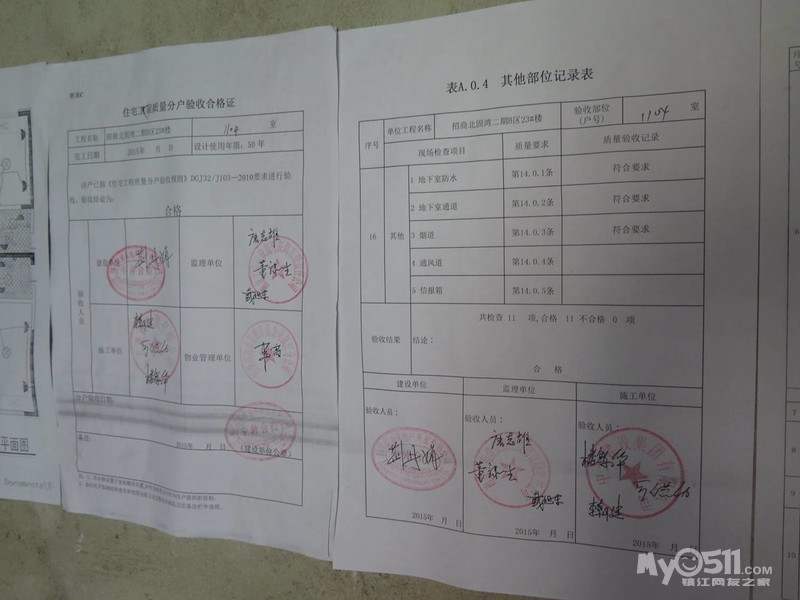 附录C
住宅工程质量分户验收合格证
工程名称 招商北固湾二期B区23#楼 1104 室
竣工日期 2015年 月 日 设计使用年限: 50 年
该户已按《住宅工程质量分户验收规则》DGJ32/J103—2010要求进行验
收，验收结论为：
合格
验收人员
建设单位
监理单位
施工单位
物业管理单位
分户验收日期:
2015年 月 日 (建设单位公章)
备注:
平面图
Documents\S
表A.0.4 其他部位记录表
序号 单位工程名称 招商北固湾二期B区23#楼 验收部位(户号) 1104
现场检查项目 质量要求 质量验收记录
16 其他
1 地下室防水 第14.0.1条 符合要求
2 地下室通道 第14.0.2条 符合要求
3 烟道 第14.0.3条 符合要求
4 通风道 第14.0.4条
5 信报箱 第14.0.5条
共检查 11 项,合格 11 不合格 0 项
验收结果 结论:
合 格
建设单位 监理单位 施工单位
验收人员: 验收人员: 验收人员:
2015年 月 日 2015年 月 日 2015年 月 日
7
8
9
10
My0511.com
镇江网友之家